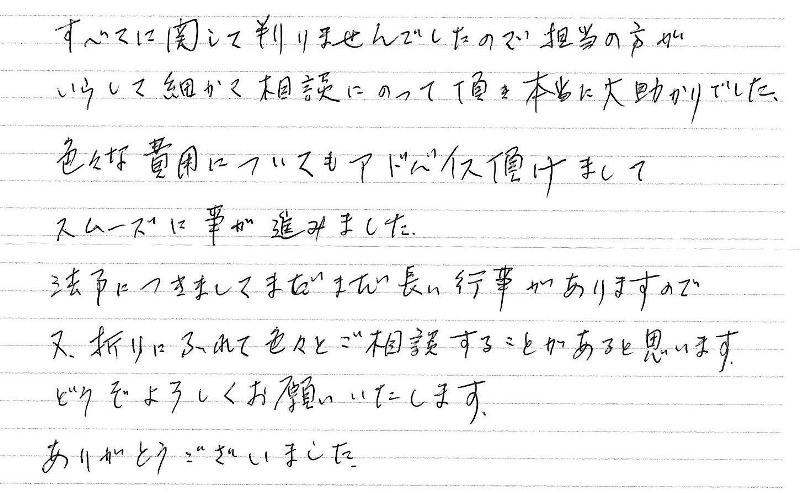 すべてに関して判りませんでしたので担当の方が
いらして細かく相談にのって頂き本当に大助かりでした。
色々な費用についてもアドバイス頂けまして
スムーズに事が進みました。
法事につきましてまだまだ長い行事がありますので
又、折りにふれて色々とご相談することがあると思います。
どうぞよろしくお願いいたします。
ありがとうございました。